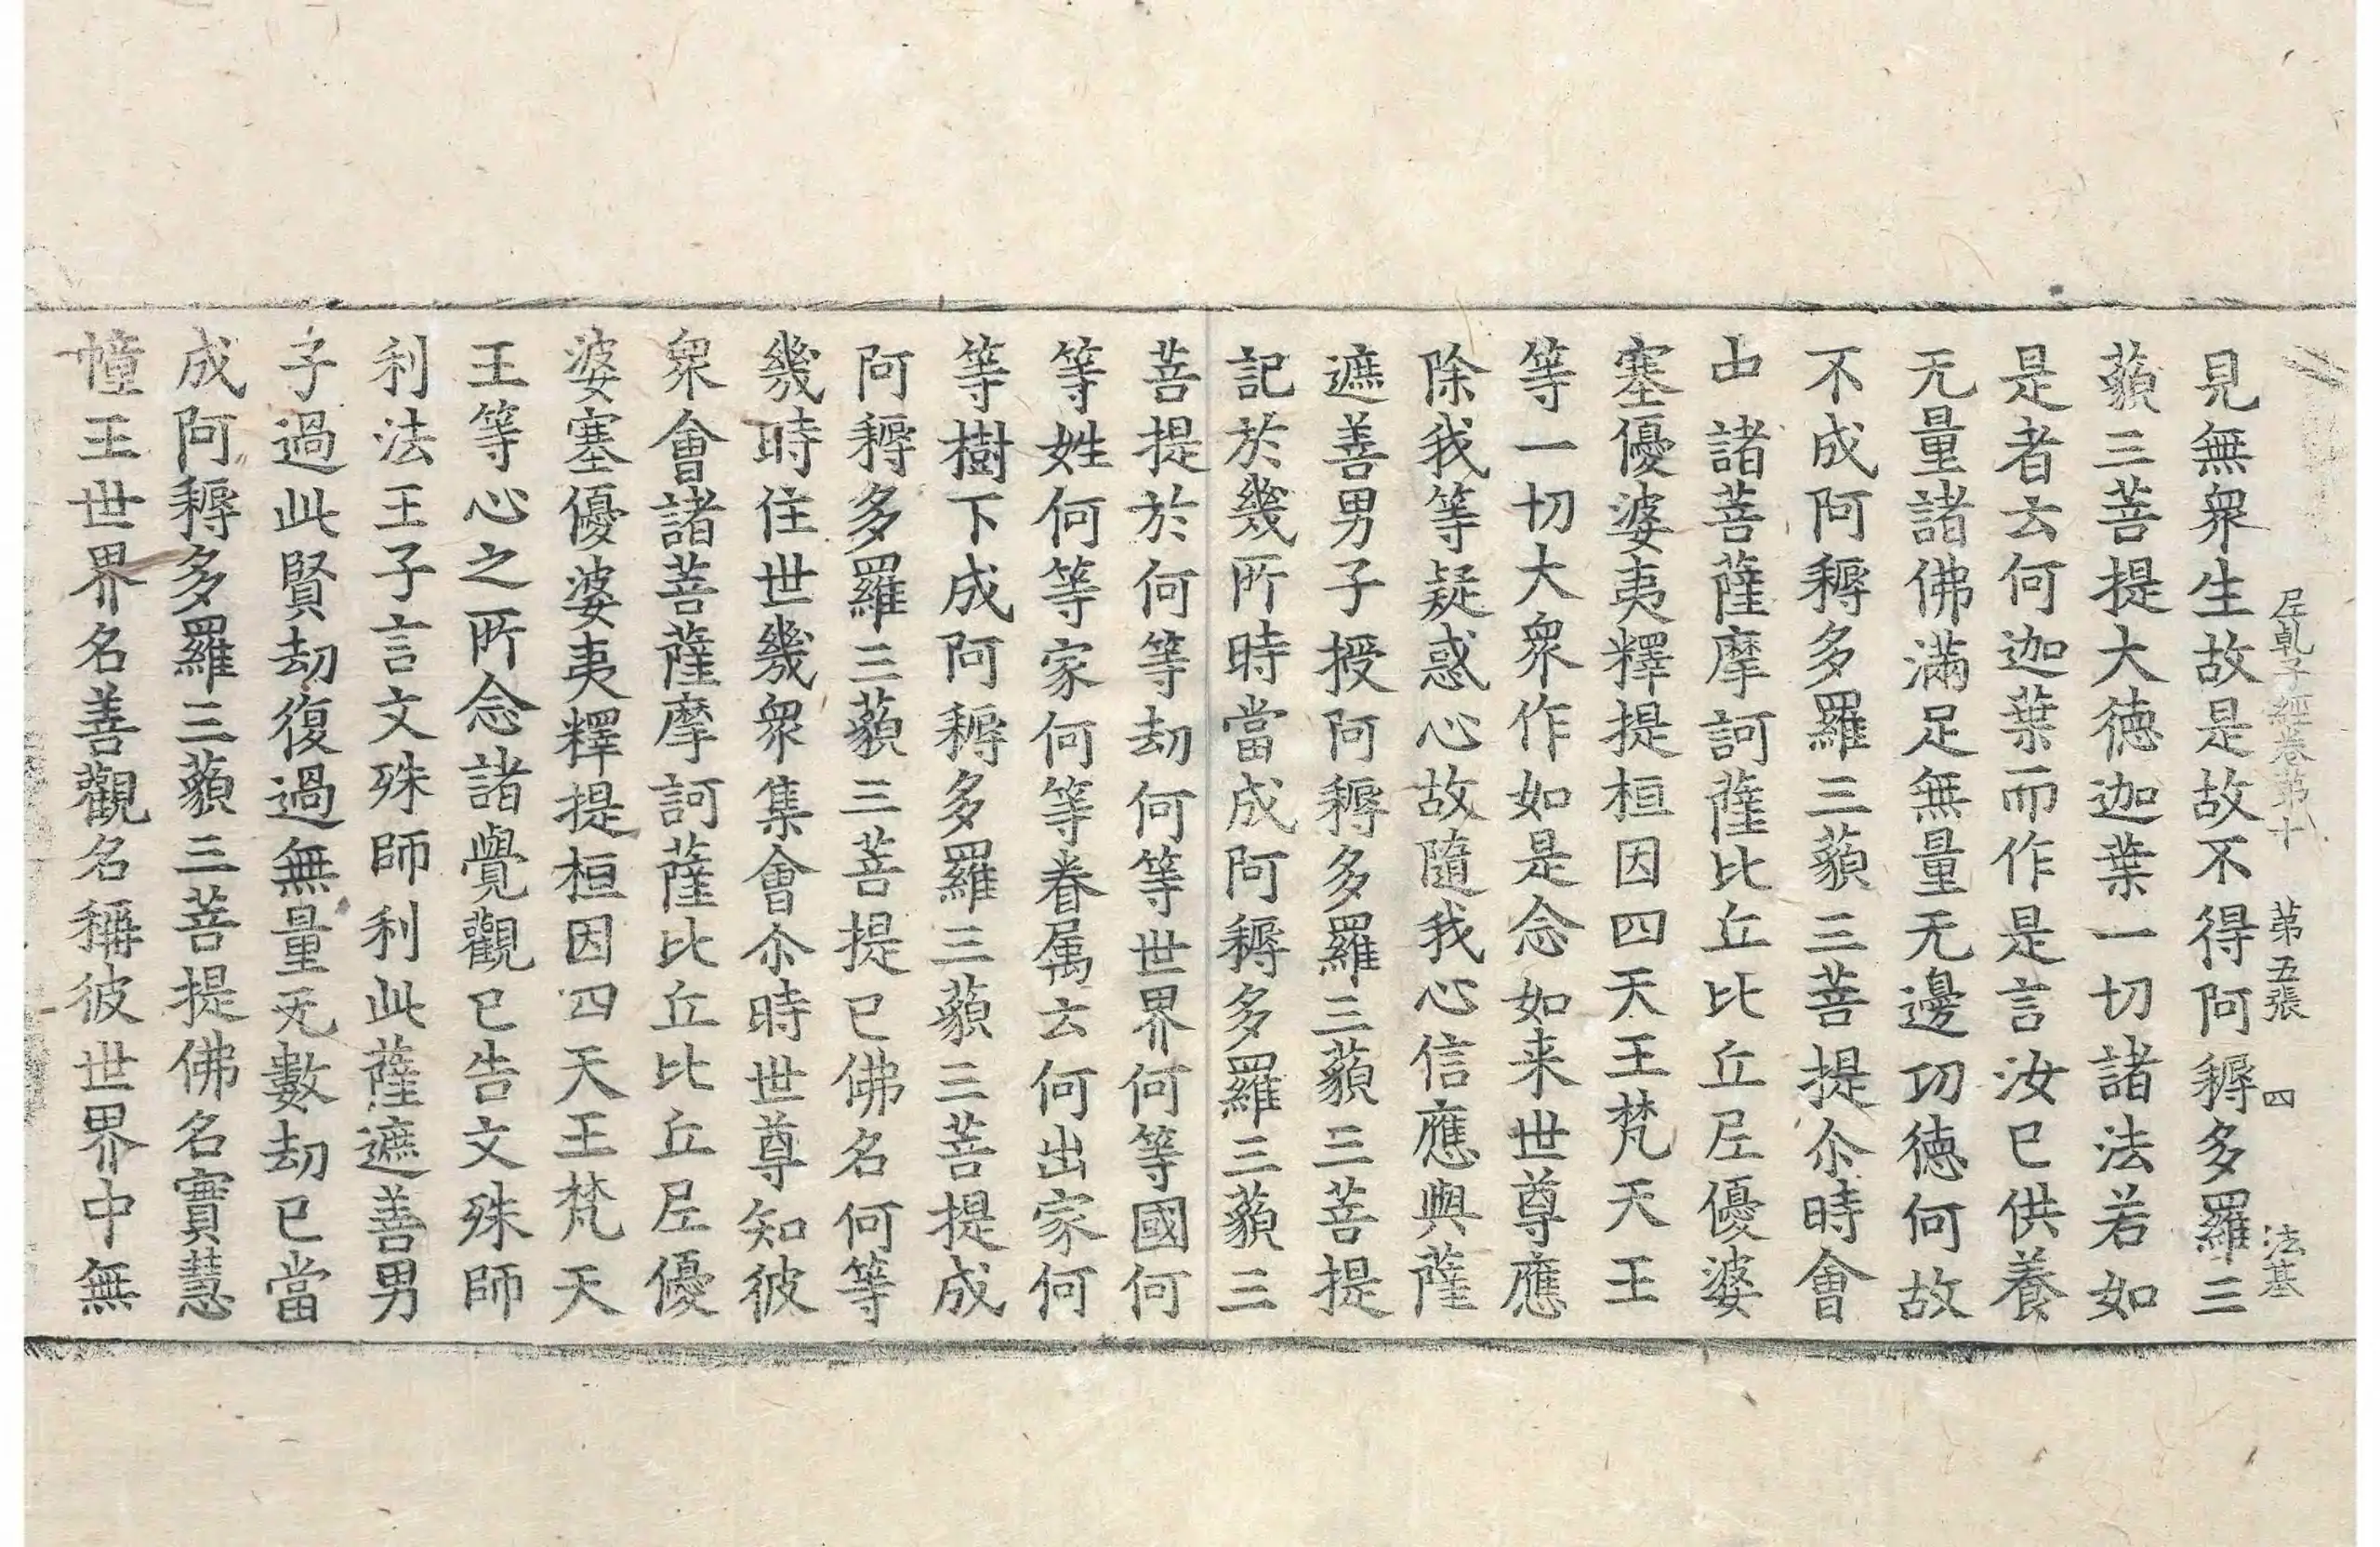 尼乹子經卷第十 第五張 四 法基
見無衆生故是故不得阿耨多羅三
藐三菩提大德迦葉一切諸法若如
是者云何迦葉而作是言汝已供養
无量諸佛滿足無量无邊功德何故
不成阿耨多羅三藐三菩提尒時會
中諸菩薩摩訶薩比丘比丘尼優婆
塞優婆夷釋提桓因四天王梵天王
等一切大衆作如是念如来世尊應
除我等疑惑心故隨我心信應與薩
遮善男子授阿耨多羅三藐三菩提
記於幾所時當成阿耨多羅三藐三
菩提於何等劫何等世界何等國何
等姓何等家何等眷属云何出家何
等樹下成阿耨多羅三藐三菩提成
阿耨多羅三藐三菩提已佛名何等
幾時住世幾衆集會尒時世尊知彼
衆會諸菩薩摩訶薩比丘比丘尼優
婆塞優婆夷釋提桓因四天王梵天
王等心之所念諸覺觀已告文殊師
利法王子言文殊師利此薩遮善男
子過此賢劫復過無量无數劫已當
成阿耨多羅三藐三菩提佛名實慧
幢王世界名善觀名稱彼世界中無